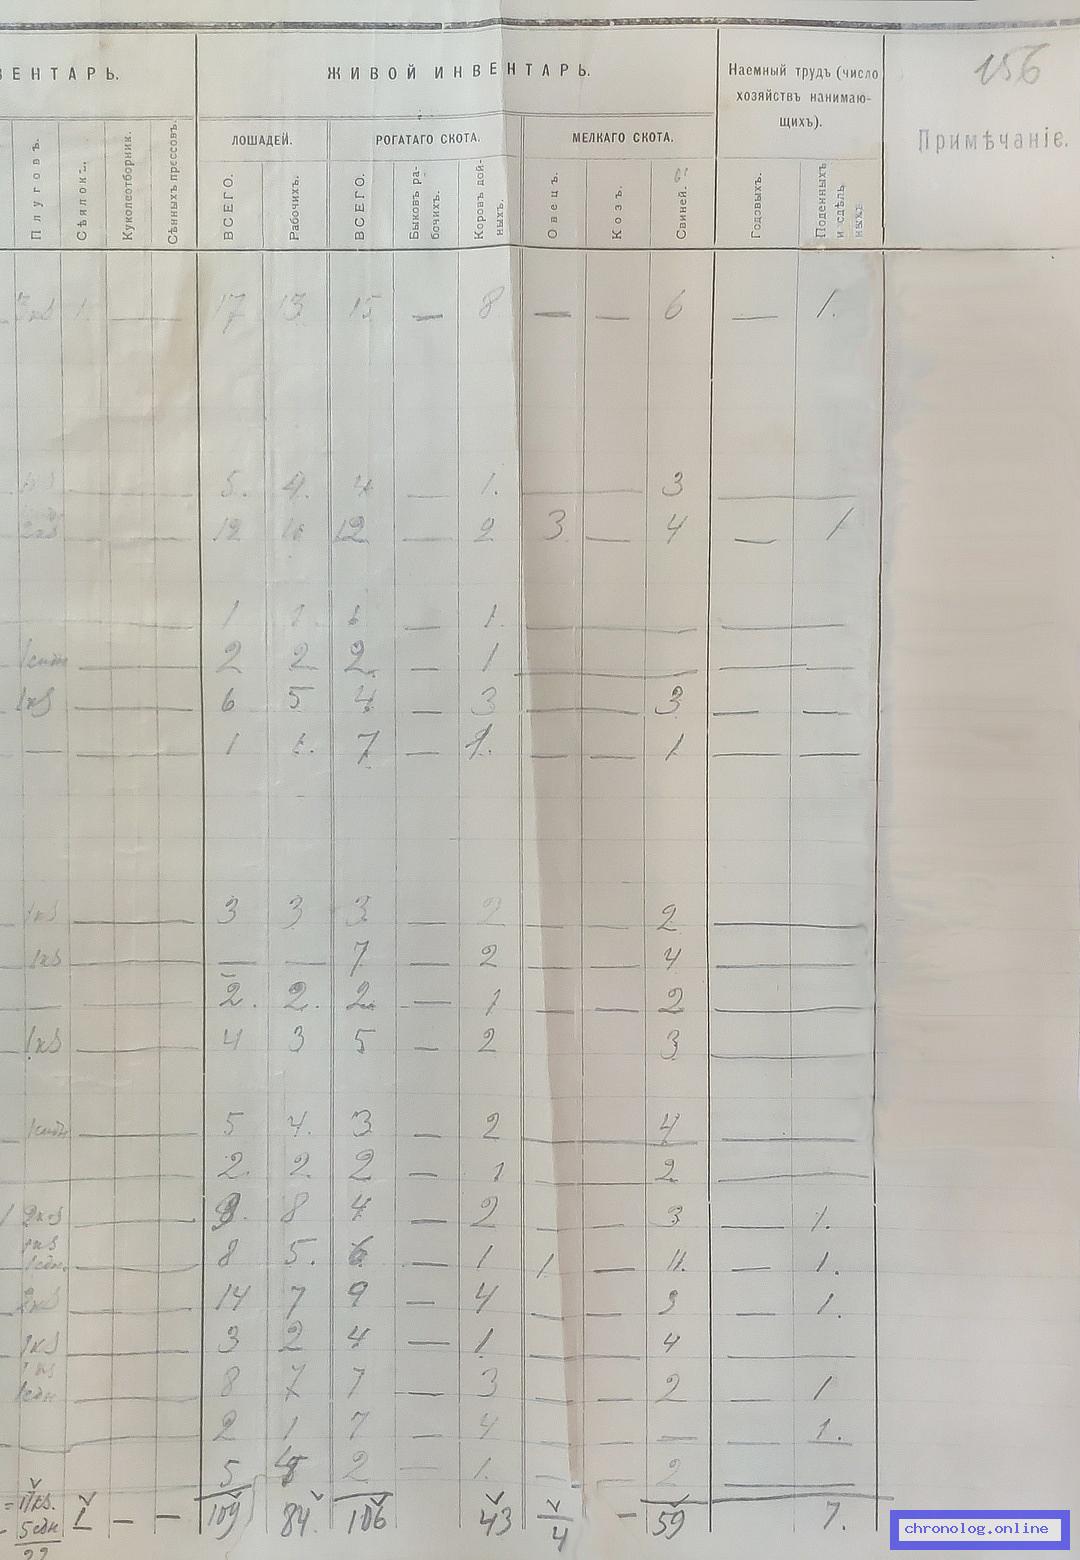 156
ВЕНТАРЬ. ЖИВОЙ ИНВЕНТАРЬ. Наемный трудъ (число хозяйствъ нанимаю-щихъ). Примѣчаніе.
ЛОШАДЕЙ. РОГАТАГО СКОТА. МЕЛКАГО СКОТА.
Плуговъ. Сѣялокъ. Куколеотборник. Сѣнныхъ прессовъ. ВСЕГО. Рабочихъ. ВСЕГО. Быковъ ра-бочихъ. Коровъ дой-ныхъ. Овецъ. Козъ. Свиней. Годовыхъ. Поденныхъ и сдѣль ныхъ
1. — 17 13 15 — 8 — — 6 — 1.
— 5. 4. 4 — 1. — 3 —
— 12 10 12 — 2 3 — 4 — 1
1 1 1 — 1 — —
— 2 2 2. — 1 — — —
1кл — 6 5 4 — 3 — 3 — —
— — 1 1. 7 — 1. — — 1 — —
1кл — 3 3 3 — 2 — — 2 —
1кл — — — 7 — 2 — — 4 —
— — 2. 2. 2 — 1 — — 2 —
1кл — 4 3 5 — 2 3 —
— 5 4. 3 — 2 — 4 —
— 2. 2. 2 — 1 — — 2 —
1 — 8 4 — 2 — — 3 — 1.
— 8 5. 6 — 1 1. — 11. — 1.
— 14 7 9 — 4 — — 3 — 1.
1кл — 3 2 4 — 1. — — 4 —
— 8 7 7 — 3 — — 2 — 1
— 2 1 7 — 4 — — — — 1.
5 2 — 1. — — 2 —
= 17кл. 1 — — 109 84. 106 43 4 — 59 7.
5сдн
22
chronolog.online